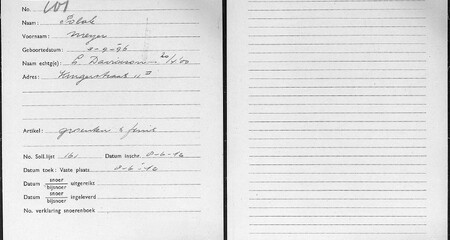 No. 101
Naam: Polak
Voornaam: Meyer
Geboortedatum: 2-9-96
Naam echtg(e): E. Davidson
Adres:
Artikel: groenten & fruit
No. Soll.lijst 161 Datum inschr. 8-6-
Datum toek: Vaste plaats 8-6-
Datum snoer bijsnoer uitgereikt
Datum snoer bijsnoer ingeleverd
No. verklaring snoerenboek